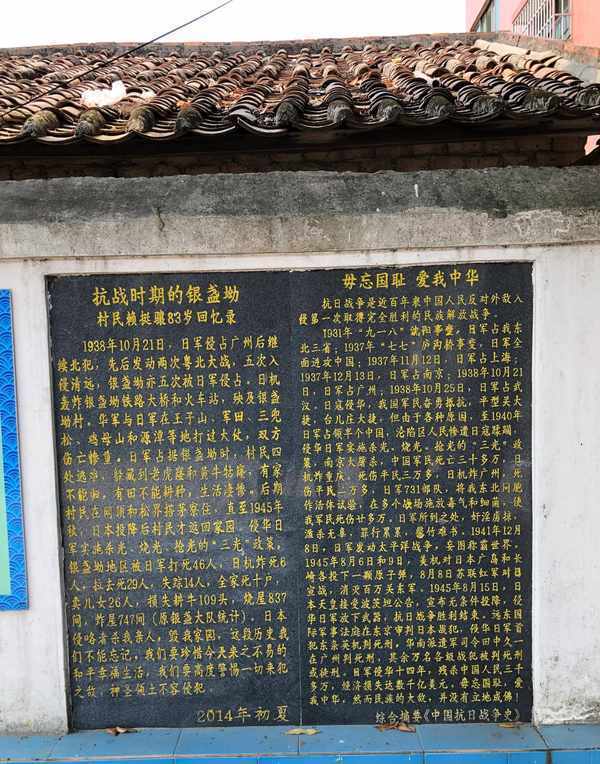 抗战时期的银盏坳
村民赖挺骥83岁回忆录
1938年10月21日，日军侵占广州后继
续北犯，先后发动两次粤北大战，五次入
侵清远，银盏坳亦五次被日军侵占。日机
轰炸银盏坳铁路大桥和火车站，殃及银盏
坳村。华军与日军在王子山、军田、三兜
松、鸡母山和源潭等地打过大仗，双方
伤亡惨重。日军占据银盏坳时，村民四
处逃难，躲藏到老虎窿和黄牛牯窿，有家
不能归，有田不能耕种，生活凄惨。后期
村民在网顶和松界搭茅寮住，直至1945年
秋，日本投降后村民才返回家园。侵华日
军实施杀光、烧光、抢光的“三光”政策，
银盏坳地区被日军打死46人，日机炸死6
人，拉去死29人，失踪14人，全家死十户，
卖儿女26人，损失耕牛109头，烧屋837
间，炸屋747间（原银盏大队统计）。日本
侵略者杀我亲人，毁我家园，这段历史我
们不能忘记，我们要珍惜今天来之不易的
和平幸福生活，我们要高度警惕一切来犯
之敌，神圣领土不容侵犯。
2014年初夏
毋忘国耻 爱我中华
抗日战争是近百年来中国人民反对外敌入
侵第一次取得完全胜利的民族解放战争。
1931年“九一八”沈阳事变，日军占我东
北三省；1937年“七七”卢沟桥事变，日军全
面进攻中国；1937年11月12日，日军占上海；
1937年12月13日，日军占南京；1938年10月21
日，日军占广州；1938年10月25日，日军占武
汉。日寇侵华，我国军民奋勇抵抗，平型关大
捷，台儿庄大捷。但由于各种原因，至1940年
日军占领半个中国，沦陷区人民惨遭日寇蹂躏，
侵华日军实施杀光、烧光、抢光的“三光”政
策，南京大屠杀，中国军民死亡三十多万，日
机炸重庆，死伤平民三万多，日机炸广州，死
伤平民二万多，日军731部队，将我东北同胞
作活体试验，在多个战场施放毒气和细菌，使
我军民死伤廿多万，日军所到之处，奸淫虏掠，
滥杀无辜，罪行累累，罄竹难书。1941年12月
8日，日军发动太平洋战争，妄图称霸世界。
1945年8月6日和9日，美机对日本广岛和长
崎各投下一颗原子弹，8月8日苏联红军对日
宣战，消灭百万关东军。1945年8月15日，日
本天皇接受波茨坦公告，宣布无条件投降，侵
华日军放下武器，抗日战争胜利结束。远东国
际军事法庭在东京审判日本战犯，侵华日军首
犯东条英机判死刑，华南派遣军司令田中久一
在广州判死刑，其余万名各级战犯被判死刑
或徒刑。日军侵华十四年，残杀中国人民三千
多万，经济损失达数千亿美元。毋忘国耻，爱
我中华，然而民族的大敌，并没有立地成佛！
综合摘要《中国抗日战争史》